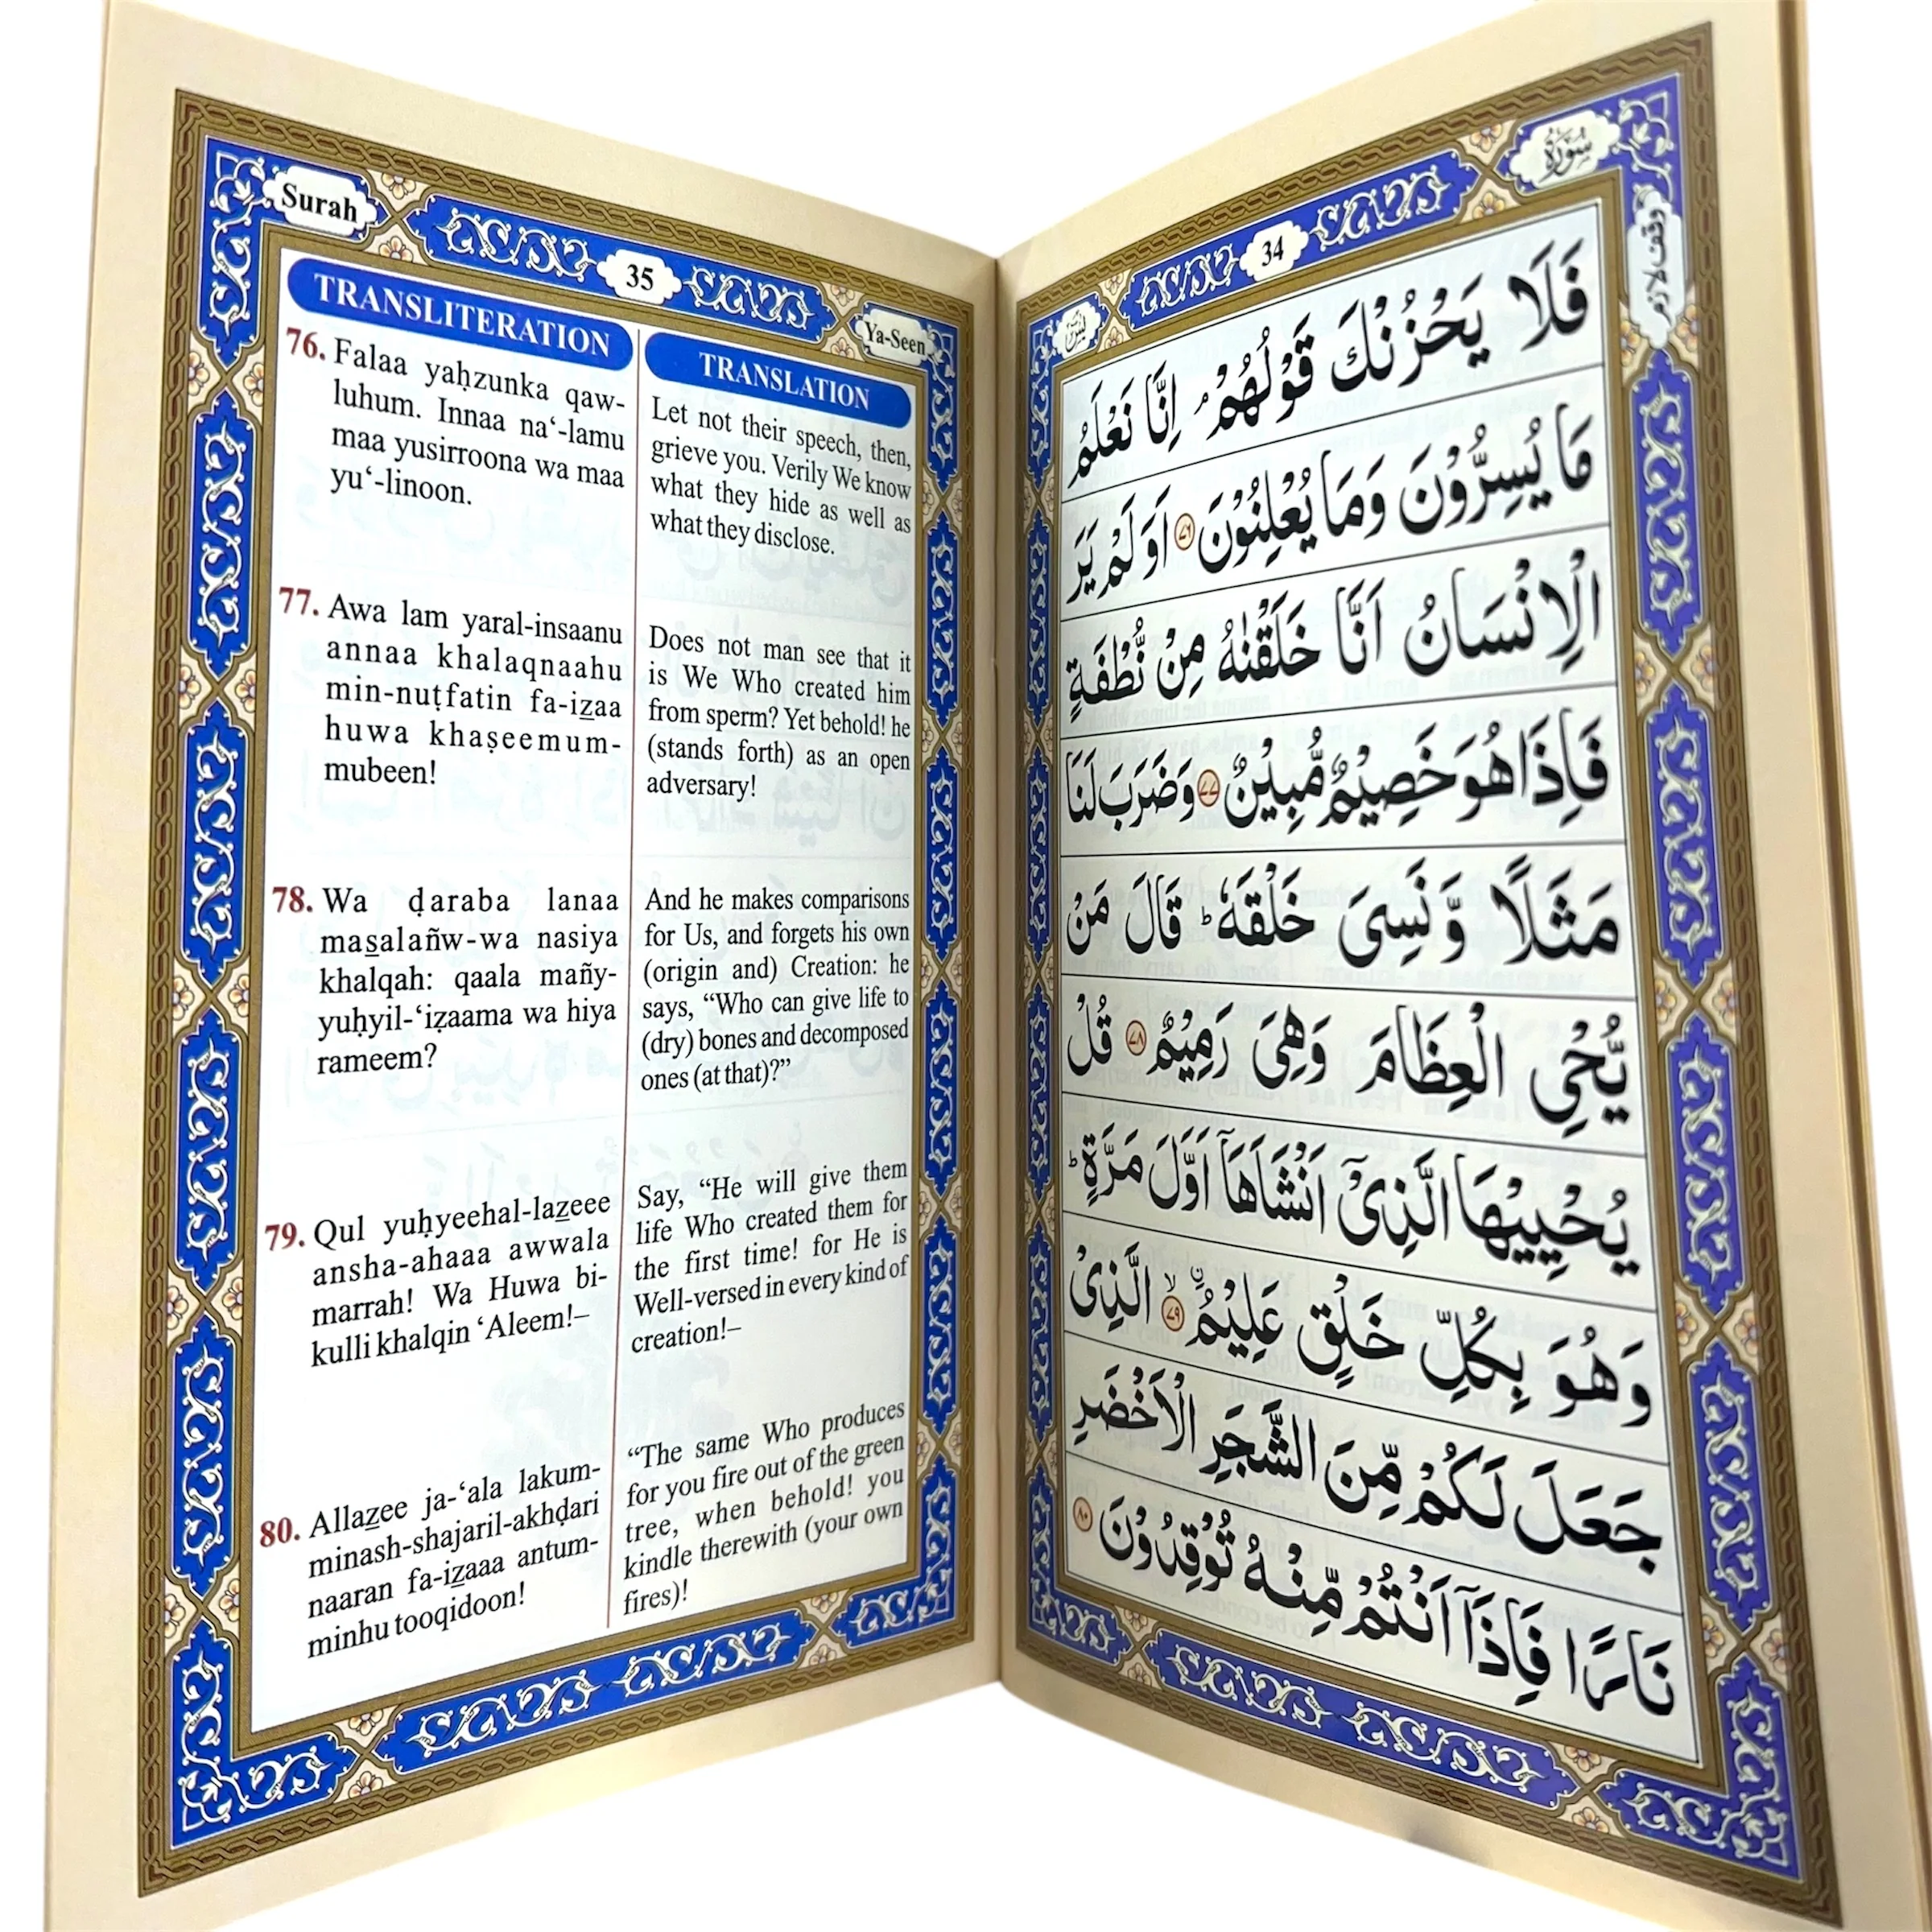 Surah
35
Ya-Seen
TRANSLITERATION
76. Falaa yaḥzunka qaw-
luhum. Innaa na‘-lamu
maa yusirroona wa maa
yu‘-linoon.
77. Awa lam yaral-insaanu
annaa khalaqnaahu
min-nuṭfatin fa-iẕaa
huwa khaṣeemum-
mubeen!
78. Wa ḍaraba lanaa
mas̱alañw-wa nasiya
khalqah: qaala mañy-
yuḥyil-‘iẓaama wa hiya
rameem?
79. Qul yuḥyeehal-laẕeee
ansha-ahaaa awwala
marrah! Wa Huwa bi-
kulli khalqin ‘Aleem!–
80. Allaẕee ja-‘ala lakum-
minash-shajaril-akhḍari
naaran fa-iẕaaa antum-
minhu tooqidoon!
TRANSLATION
Let not their speech, then,
grieve you. Verily We know
what they hide as well as
what they disclose.
Does not man see that it
is We Who created him
from sperm? Yet behold! he
(stands forth) as an open
adversary!
And he makes comparisons
for Us, and forgets his own
(origin and) Creation: he
says, “Who can give life to
(dry) bones and decomposed
ones (at that)?”
Say, “He will give them
life Who created them for
the first time! for He is
Well-versed in every kind of
creation!–
“The same Who produces
for you fire out of the green
tree, when behold! you
kindle therewith (your own
fires)!
سُوْرَةُ
34
يٰسٓ
وقف لازم
فَلَا يَحْزُنْكَ قَوْلُهُمْ ۘ اِنَّا نَعْلَمُ
مَا يُسِرُّوْنَ وَمَا يُعْلِنُوْنَ ۷۶ اَوَلَمْ يَرَ
الْاِنْسَانُ اَنَّا خَلَقْنٰهُ مِنْ نُّطْفَةٍ
فَاِذَا هُوَ خَصِيْمٌ مُّبِيْنٌ ۷۷ وَضَرَبَ لَنَا
مَثَلًا وَّنَسِىَ خَلْقَهٗ ؕ قَالَ مَنْ
يُّحْىِ الْعِظَامَ وَهِىَ رَمِيْمٌ ۷۸ قُلْ
يُحْيِيْهَا الَّذِىْٓ اَنْشَاَهَاۤ اَوَّلَ مَرَّةٍ ؕ
وَهُوَ بِكُلِّ خَلْقٍ عَلِيْمُ ۙ۷۹ الَّذِىْ
جَعَلَ لَكُمْ مِّنَ الشَّجَرِ الْاَخْضَرِ
نَارًا فَاِذَاۤ اَنْتُمْ مِّنْهُ تُوْقِدُوْنَ ۸۰